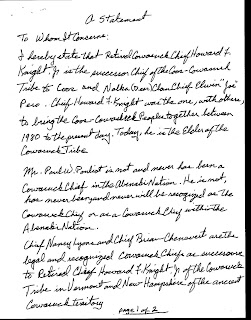 A Statement
To Whom It Concerns:
I hereby state that Retired Cowasuck Chief Howard F.
Knight Jr is the successor Chief of the Coos-Cowasuck
Tribe to Coos and Clan Chief
Pero. Chief Howard F. Knight was the one, with others,
to bring the Coos-Cowasuck People together between
1980 to the present day. Today, he is the Elder of the
Cowasuck Tribe
Mr. Paul W. Pouliot is not and never has been a
Cowasuck Chief in the Abenaki Nation. He is not,
has never been and never will be recognized as the
Cowasuck Chief or as a Cowasuck Chief within the
Abenaki Nation.
Chief Nancy Lyons and Chief Brian Chenevert are the
legal and recognized Cowasuck Chiefs as successors
to Retired Chief Howard F. Knight Jr of the Cowasuck
Tribe in Vermont and New Hampshire of the ancient
Cowasuck territory
page 1 of 2